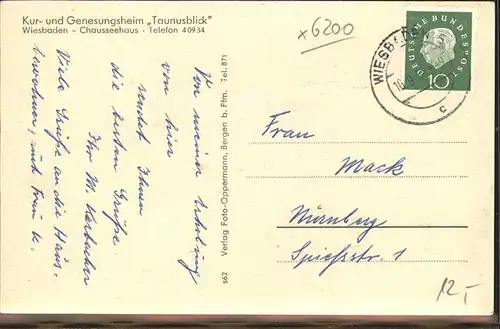 Kur- und Genesungsheim „Taunusblick"
Wiesbaden - Chausseehaus - Telefon 40934
x6200
WIESBADEN
c
DEUTSCHE BUNDESPOST
10
Von meiner Erholung
von hier
sendet Ihnen
die besten Grüße
Ihr M. Karbacher
Viele Grüße an die Haus-
bewohner, auch Frau K.
562 Verlag Foto-Oppermann, Bergen b. Ffm. Tel. 871
Frau
Mack
Nürnberg
Spiessstr. 1
12,-